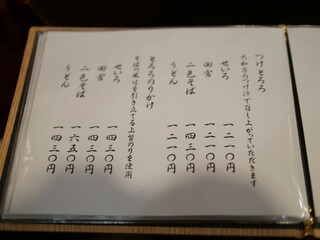 つけとろろ
大和芋のつけ汁で召し上がっていただきます
せいろ 一二一〇円
田舎 一二一〇円
二色そば 一四三〇円
うどん 一二一〇円
とろろのりかけ
そばの風味を引き立てる上質のりを使用
せいろ 一四三〇円
田舎 一四三〇円
二色そば 一六五〇円
うどん 一四三〇円